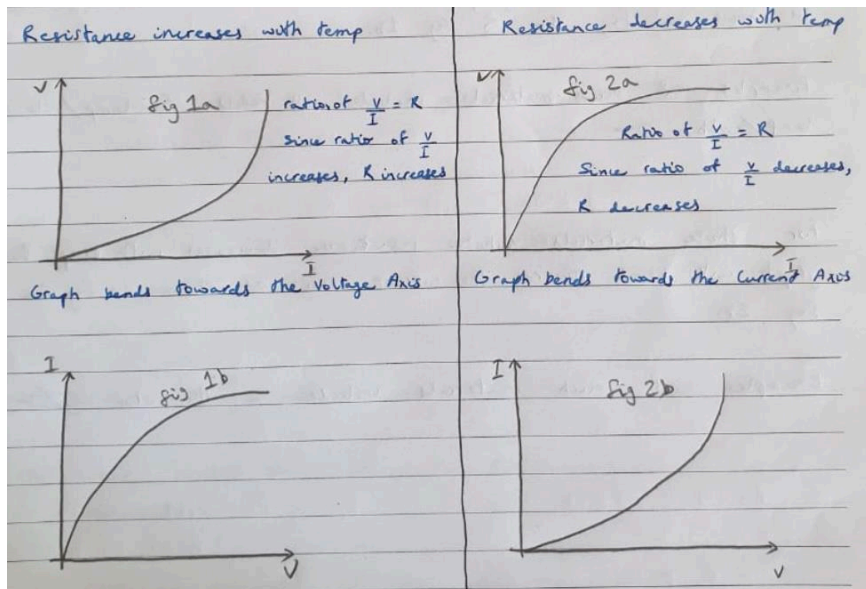 Resistance increases with temp
V
fig 1a
ratio of V/I = R
since ratio of V/I
increases, R increases
I
Graph bends towards the Voltage Axis
I
fig 1b
V
Resistance decreases with temp
V
fig 2a
Ratio of V/I = R
Since ratio of V/I decreases,
R decreases
I
Graph bends towards the Current Axis
I
fig 2b
V